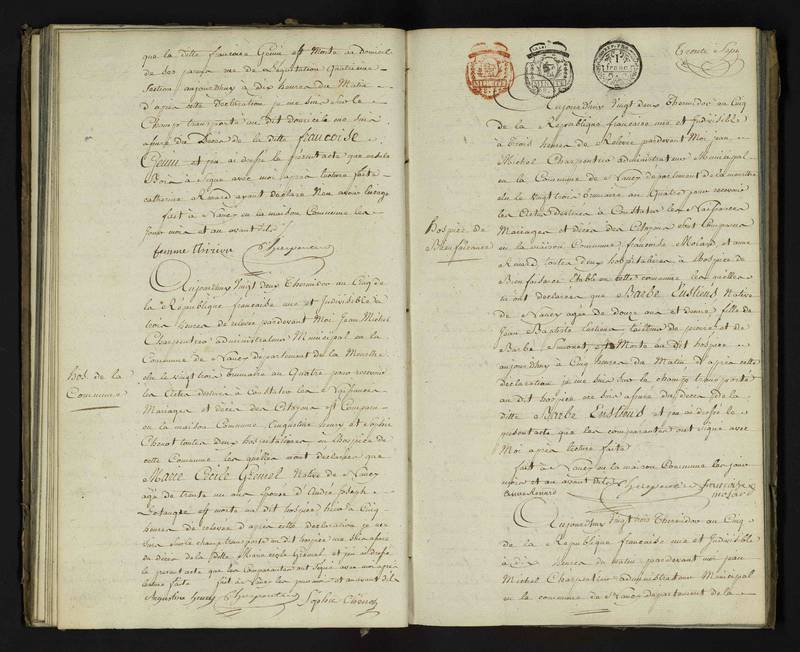 que la ditte françoise Genin est Morte au domicil
de ses père rue de l'équitation Quatrieme
Section aujourdhuy à dix heures du Matin
d'après cette Déclaration je me suis sur le
Champ transporté au Dit domicile me suis
assuré du Décès de la ditte françoise
Genin et j'en ai dressé le présent acte que
à Signé avec moi après lecture faite
catherine ayant déclaré Ne
fait à Nancy en la maison Commune les
Jour mois et an avant dits
femme thirion Charpentier
Aujourdhuy Vingt deux Thermidor an Cinq de
la République française une et Indivisible à
trois heures de relevée pardevant Moi Jean Michel
Charpentier administrateur Municipal en la
Commune de Nancy departement de la Meurthe
elu le vingt trois brumaire an Quatre pour recevoir
les Actes destinés à Constater les Naissances
Mariages et décès des Citoyens est Comparu
en la maison Commune Augustine henry et Sophie
Chenot toutes deux hospitalières en l'hospice de
cette Commune les quelles m'ont déclarées que
Marie Cécile Native de Nancy
agée de trente un ans Epouse d'André Joseph
est morte au dit hospice hier à Cinq
heures de relevée d'après cette déclaration je me
suis sur le champ transporté au dit hospice me suis assuré
du décès de la ditte Marie Cecile et j'en ai dressé
le present acte que les comparantes ont signé avec moi après
lecture faite fait à Nancy les jour mois et an avant dits
Augustine henry Charpentier Sophie Chenot
hos. de la
Commune
Trente Sept
Aujourdhuy Vingt deux Thermidor an Cinq
de la République française une et Indivisible
à Trois heures de Relevé pardevant Moi jean
Michel Charpentier administrateur Municipal
en la Commune de Nancy departement de la meurthe
elu le vingt trois brumaire an Quatre pour recevoir
les Actes destinés à Constater les Naissances
Mariages et décès des Citoyens sont Comparues
en la maison Commune françoise Moïard, et anne
Renard toutes deux hospitalières à l'hospice de
Bienfaisance Etabli en cette commune les quelles
m'ont declarées que Barbe Eustens Native
de Nancy agée de douze ans et demie fille de
Jean Baptiste tailleur de pierre et de
Barbe Simonet est Morte au dit hospice
aujourdhuy à Cinq heures du Matin d'après cette
declaration je me suis sur le champ transporté
au dit hospice me suis assuré du décès de la
ditte Barbe Eustens et j'en ai dressé le
présent acte que les comparantes ont signé avec
Moi après lecture faite
fait à Nancy en la maison Commune les jour
mois et an avant dits
anne Renard Charpentier françoise
moïard
Aujourdhuy Vingt trois Thermidor an Cinq
de la République française une et Indivisible
à dix heures du matin pardevant moi jean
Michel Charpentier administrateur Municipal
en la commune de Nancy departement de la
hospice de
Bienfaisance